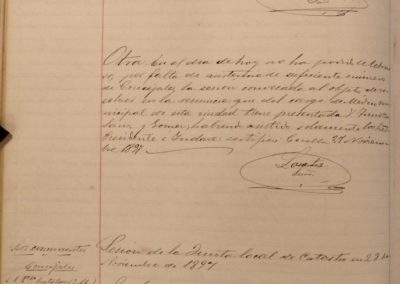 Otra. En el dia de hoy no ha podido celebrar
se, por falta de asistencia de suficiente numero
de Concejales, la sesion convocada al objeto de re
solver en la renuncia que del cargo de Medico mu
nicipal de esta ciudad tiene presentada D.
Sanz y Gomez, habiendo asistido solamente los Sres
Presidente é certifico 27 Noviem
bre 1897
Los concurrentes
Concejales
Sesion de la Junta local de Catastro en 28 de
Noviembre de 1897